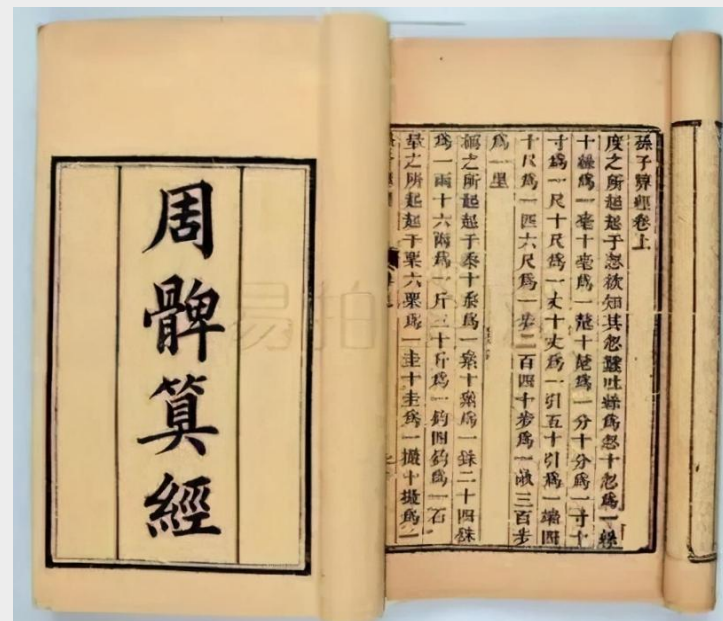 周髀算經
孫子算經卷上
度之所起起于忽欲知其忽蠶吐絲為忽十忽為一絲
十絲為一毫十毫為一氂十氂為一分十分為一寸十
寸為一尺十尺為一丈十丈為一引五十引為一端四
十尺為一匹六尺為一步二百四十步為一畝三百步
為一里
稱之所起起于黍十黍為一絫十絫為一銖二十四銖
為一兩十六兩為一斤三十斤為一鈞四鈞為一石
量之所起起于粟六粟為一圭十圭為一撮十撮為一
易拍